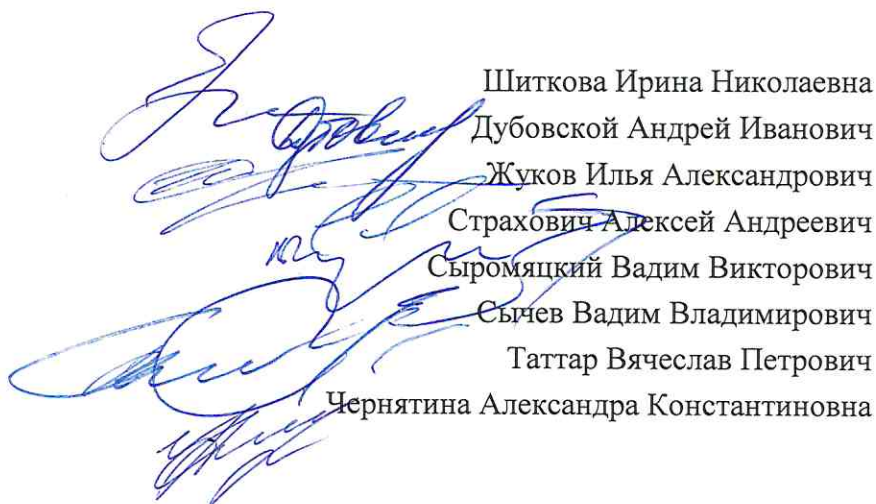 Шиткова Ирина Николаевна
Дубовской Андрей Иванович
Жуков Илья Александрович
Страхович Алексей Андреевич
Сыромяцкий Вадим Викторович
Сычев Вадим Владимирович
Таттар Вячеслав Петрович
Чернятина Александра Константиновна